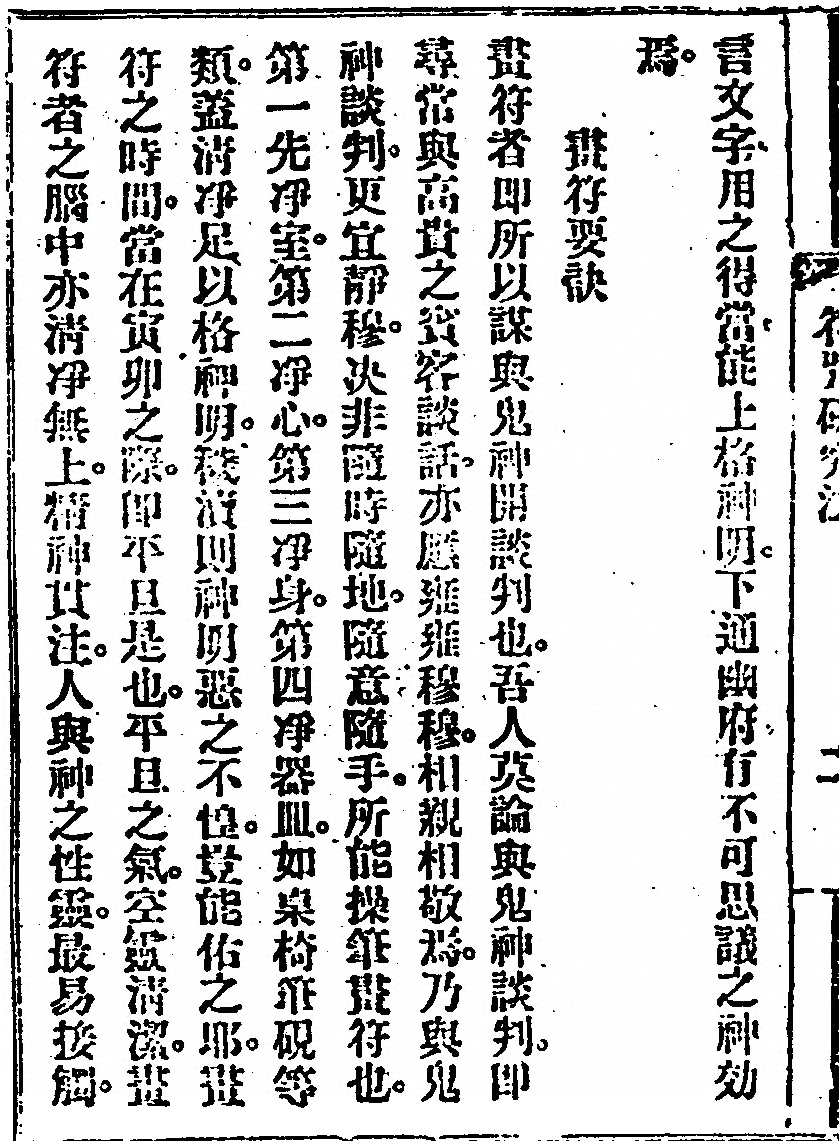 言文字、用之得當、能上格神明。下通幽府、有不可思議之神効
焉。
畫符要訣
畫符者卽所以謀與鬼神開談判也。吾人莫論與鬼神談判。卽
尋常與高貴之賓客談話、亦應雍雍穆穆。相親相敬焉。乃與鬼
神談判。更宜靜穆。决非隨時隨地。隨意隨手。所能操筆畫符也。
第一先凈室。第二凈心。第三凈身。第四凈器皿。如桌椅筆硯等
類。蓋淸凈足以格神明。穢瀆則神明惡之不惶。豈能佑之耶。畫
符之時間。當在寅卯之際。卽平旦是也。平旦之氣。空靈淸潔。畫
符者之腦中亦淸凈無上。精神貫注。人與神之性靈。最易接觸。